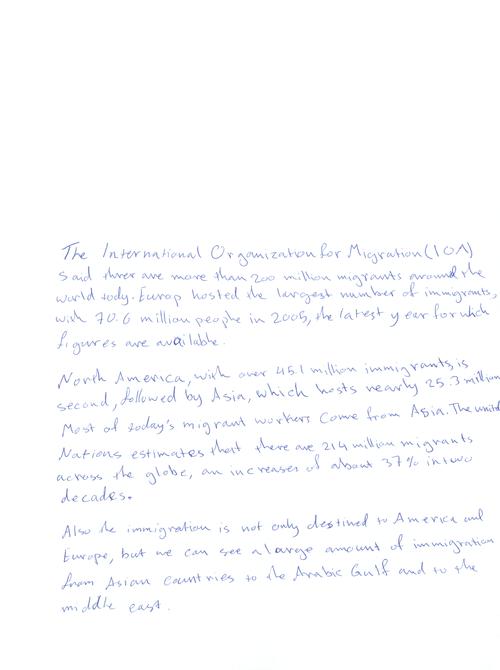 The International Organization for Migration (IOM)
Said threr are more than 200 million migrants around the
world tody. Europ hosted the largest number of immigrants,
with 70.6 million people in 2005, the latest year for which
figures are available.
North America, with over 45.1 million immigrants, is
second, followed by Asia, which hosts nearly 25.3 million
Most of today's migrant workers come from Asia. The united
Nations estimates that there are 214 million migrants
across the globe, an increases of about 37% in two
decades.
Also the immigration is not only destined to America and
Europe, but we can see a large amount of immigration
from Asian countries to the Arabic Gulf and to the
middle east.